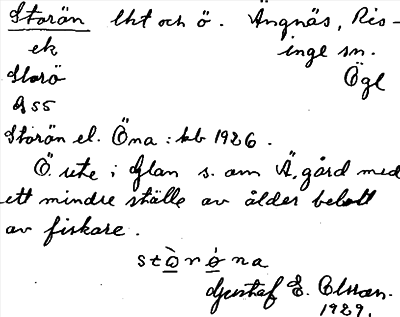 Storön lht och ö. Ängnäs, Ris-
ek inge sn.
Storö Ögl
G55
Storön el. Öna: kb 1926.
Ö. ute i Glan s. om Ä. gård med
ett mindre ställe av ålder bebott
av fiskare.
Gustaf E. Olsson.
1929.